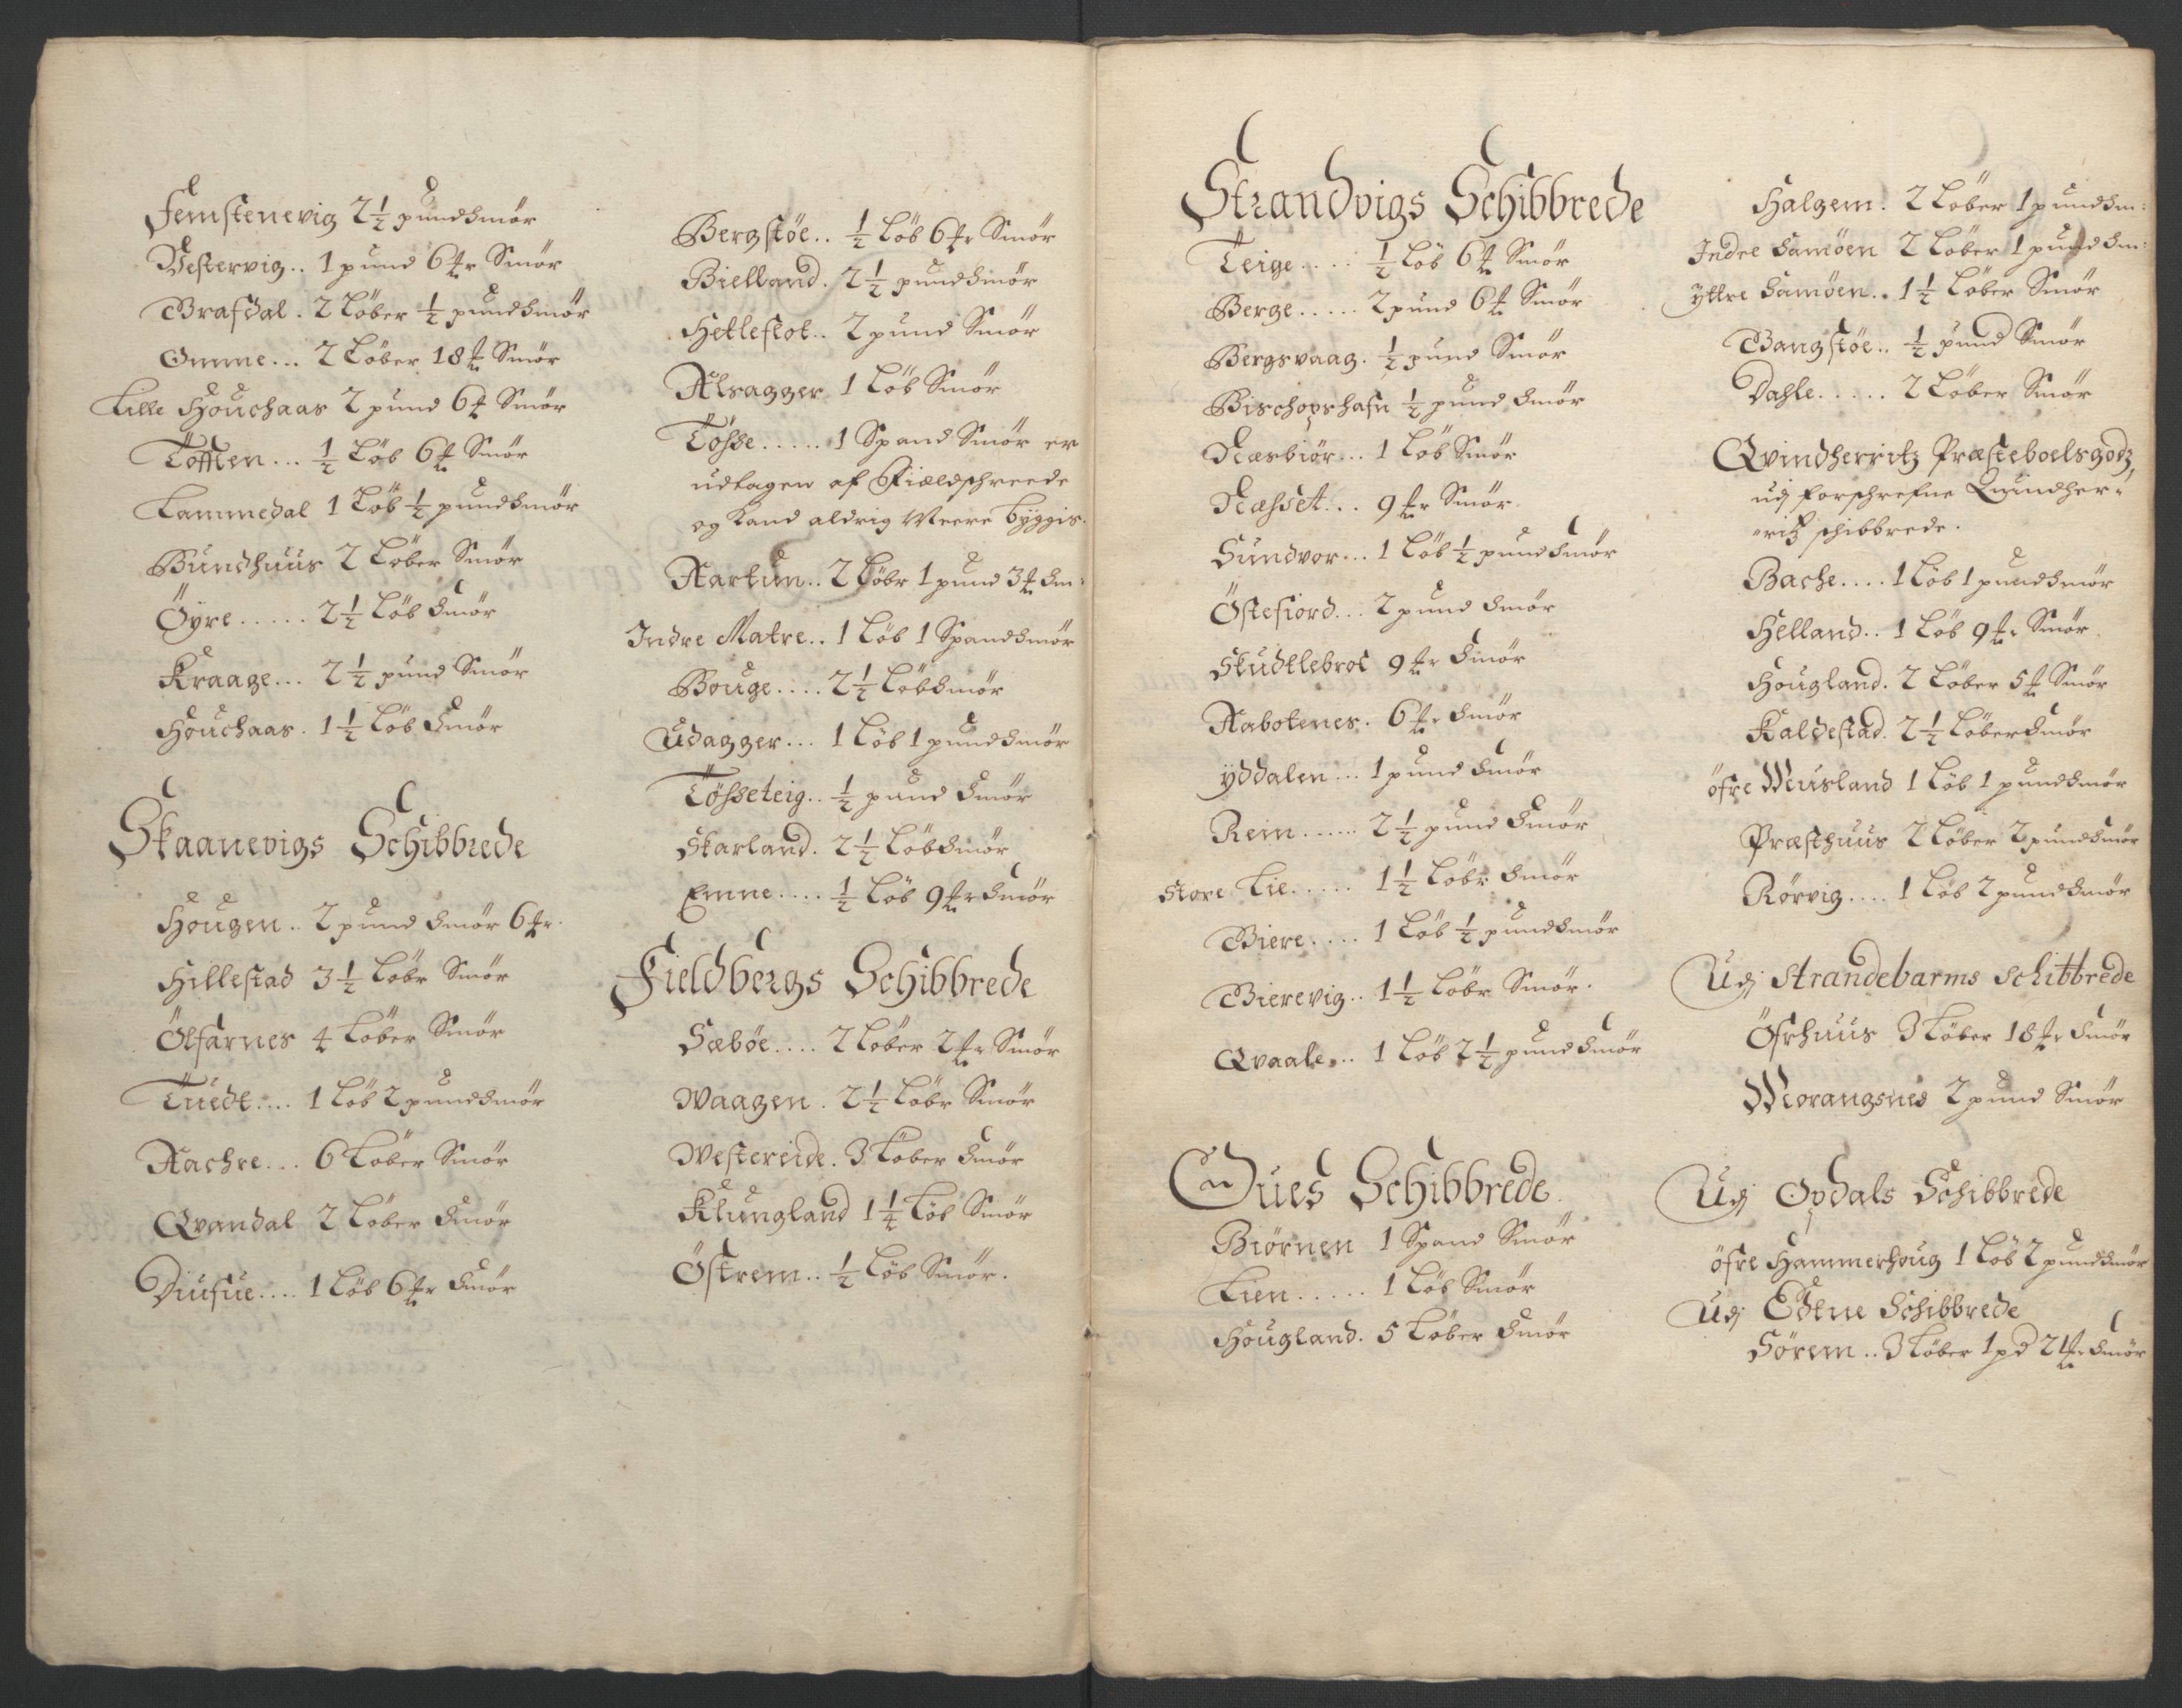 Femstenevig 2 1/2 pund Smör
Vestervig.. 1 pund 6 ℔r Smör
Brafdal. 2 Löber 1/2 pund Smör
Omme... 2 Löber 18 ℔ Smör
Lille Houchaas 2 pund 6 ℔ Smör
Töfften... 1/2 Löb 6 ℔ Smör
Kammedal 1 Löb 1/2 pund Smör
Bundhuus 2 Löber Smör
Öyre..... 2 1/2 Löb Smör
Kraage... 2 1/2 pund Smör
Houchaas. 1 1/2 Löb Smör
Skaanevigs Schibbrede
Hougen.. 2 pund Smör 6 ℔r.
Hillestad 3 1/2 Löbr Smör
Ölfarnes 4 Löber Smör
Tuedt.... 1 Löb 2 pund Smör
Aachre... 6 Löber Smör
Qvandal 2 Löber Smör
Diufue.... 1 Löb 6 ℔r Smör
Bergstöe.. 1/2 Löb 6 ℔r Smör
Bielland. 2 1/2 pund Smör
Hetleflot.. 2 pund Smör
Alsagger 1 Löb Smör
Tösse..... 1 Spand Smör er
udtagen af Fieldschreede
og kand aldrig Meere byggis.
Aartun.. 2 Löbr 1 pund 3 ℔ Sm:
Indre Matre.. 1 Löb 1 Spand Smör
Bouge.... 2 1/2 Löb Smör
Udagger... 1 Löb 1 pund Smör
Tösseteig.. 1/2 pund Smör
Skarland. 2 1/2 Löb Smör
Emne.... 1/2 Löb 9 ℔r Smör
Fieldbergs Schibbrede
Sæböe.... 2 Löber 2 ℔r Smör
Waagen. 2 1/2 Löbr Smör
Westereide. 3 Löber Smör
Klungland 1 1/4 Löb Smör
Östrem.. 1/2 Löb Smör.
Strandvigs Schibbrede
Teige..... 1/2 Löb 6 ℔ Smör
Berge..... 2 pund 6 ℔ Smör
Bergsvaag. 1/2 pund Smör
Bischopshafn 1/2 pund Smör
Næsbiör... 1 Löb Smör
Næsset... 9 ℔r Smör
Sundvor... 1 Löb 1/2 pund Smör
Östefiord... 2 pund Smör
Skudtlebrot 9 ℔r Smör
Aabotenes. 6 ℔r Smör
ÿddalen... 1 pund Smör
Rein...... 2 1/2 pund Smör
Store Lie..... 1 1/2 Löbr Smör
Biere.... 1 Löb 1/2 pund Smör
Bierevig.. 1 1/2 Löbr Smör.
Qvaale... 1 Löb 2 1/2 pund Smör
Oues Schibbrede.
Biörnen 1 Spand Smör
Lien..... 1 Löb Smör
Hougland. 5 Löber Smör
Halgem. 2 Löber 1 pund Sm:
Indre Samöen 2 Löber 1 pund Sm:
ÿttre Samöen.. 1 1/2 Löber Smör
Bangstöe.. 1/2 pund Smör
Dahle..... 2 Löber Smör
Qvindherritz Præsteboelsgodz,
udj forschrefne Quindher-
"ritz schibbrede.
Bache.... 1 Löb 1 pund Smör
Helland.. 1 Löb 9 ℔r Smör
Hougland. 2 Löber 5 ℔ Smör
Kaldestad. 2 1/2 Löber Smör
öfre Musland 1 Löb 1 pund Smör
Præsthuus 2 Löber 2 pund Smör
Rörvig.... 1 Löb 2 pund Smör
Udj Strandebarms Schibbrede
Öfrhuus 3 Löber 18 ℔r Smör
Morangsnes 2 pund Smör
Udj Opdals Schibbrede
öfre Hammerhoug 1 Löb 2 pund Smör
Udj Edtne Schibbrede
Sörem.. 3 Löber 1 pd 21 ℔r Smör